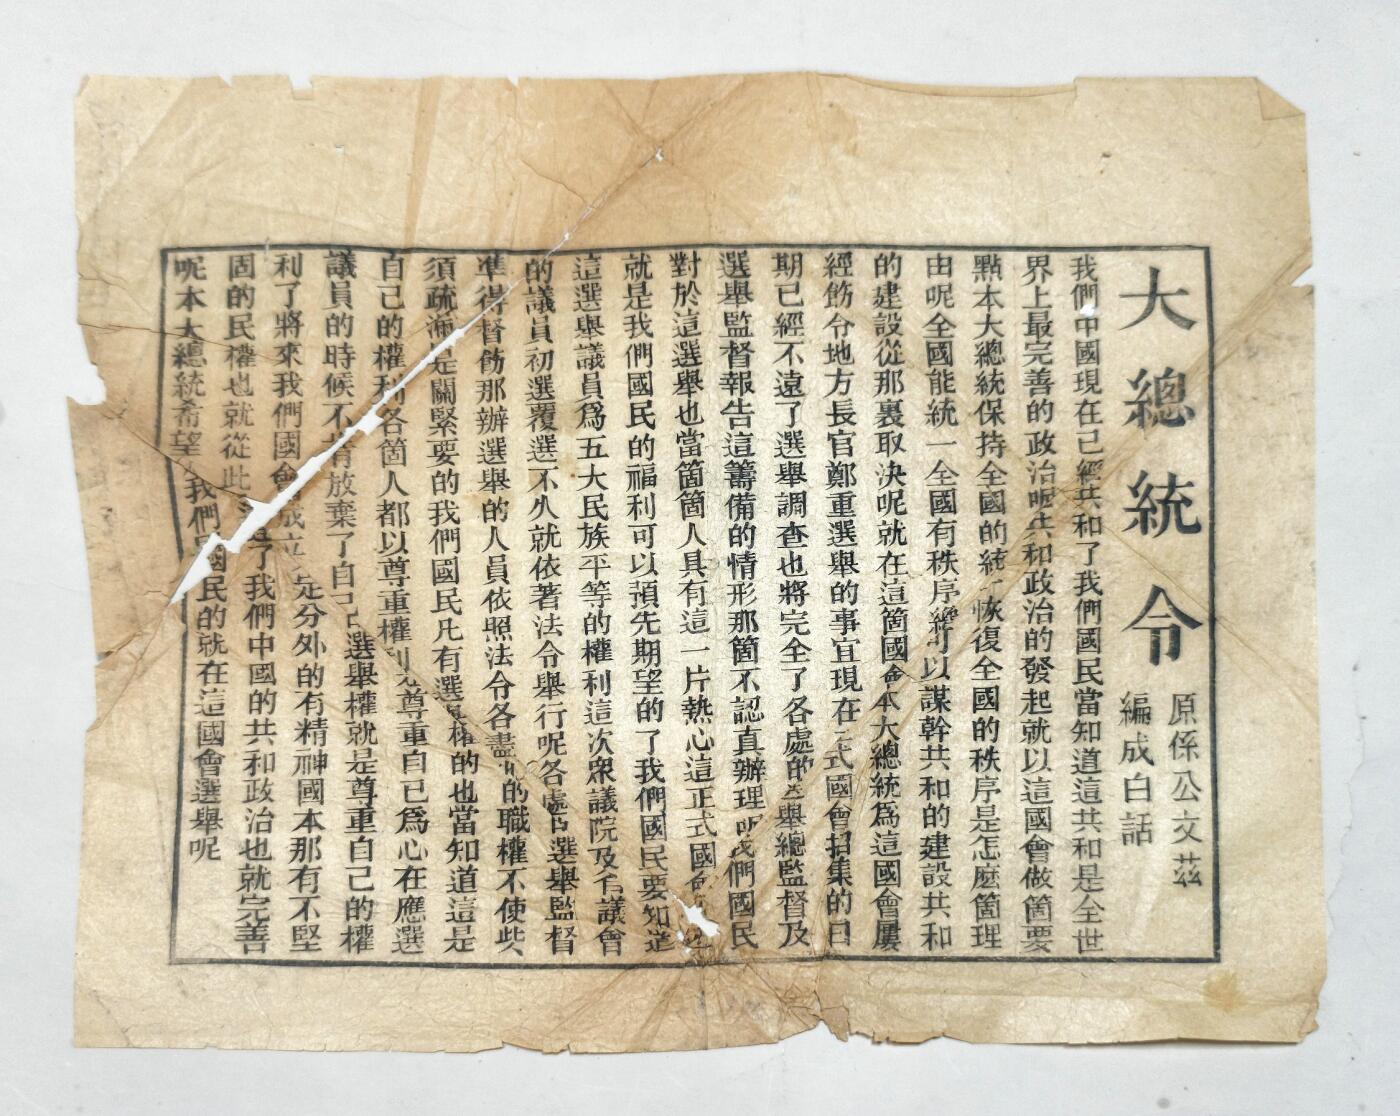 大總統令
原係公文茲
編成白話
我們中國現在已經共和了我們國民當知道這共和是全世
界上最完善的政治呢共和政治的發起就以這國會做箇要
點本大總統保持全國的統一恢復全國的秩序是怎麽箇理
由呢全國能統一全國有秩序纔可以謀幹共和的建設共和
的建設從那裏取決呢就在這箇國會本大總統爲這國會屢
經飭令地方長官鄭重選舉的事宜現在正式國會招集的日
期已經不遠了選舉調查也將完全了各處的選舉總監督及
選舉監督報告這籌備的情形那箇不認真辦理呢我們國民
對於這選舉也當箇箇人具有這一片熱心這正式國會
就是我們國民的福利可以預先期望的了我們國民要知道
這選舉議員爲五大民族平等的權利這次衆議院及省議會
的議員初選覆選不久就依著法令舉行呢各處選舉監督
準得督飭那辦選舉的人員依照法令各盡的職權不使些
須疏漏是關緊要的我們國民凡有選舉權的也當知道這是
自己的權利各箇人都以尊重權利尊重自己爲心在應選
議員的時候不肯放棄了自己選舉權就是尊重自己的權
利了將來我們國會成立定分外的有精神國本那有不堅
固的民權也就從此了我們中國的共和政治也就完善
呢本大總統希望我們國民的就在這國會選舉呢